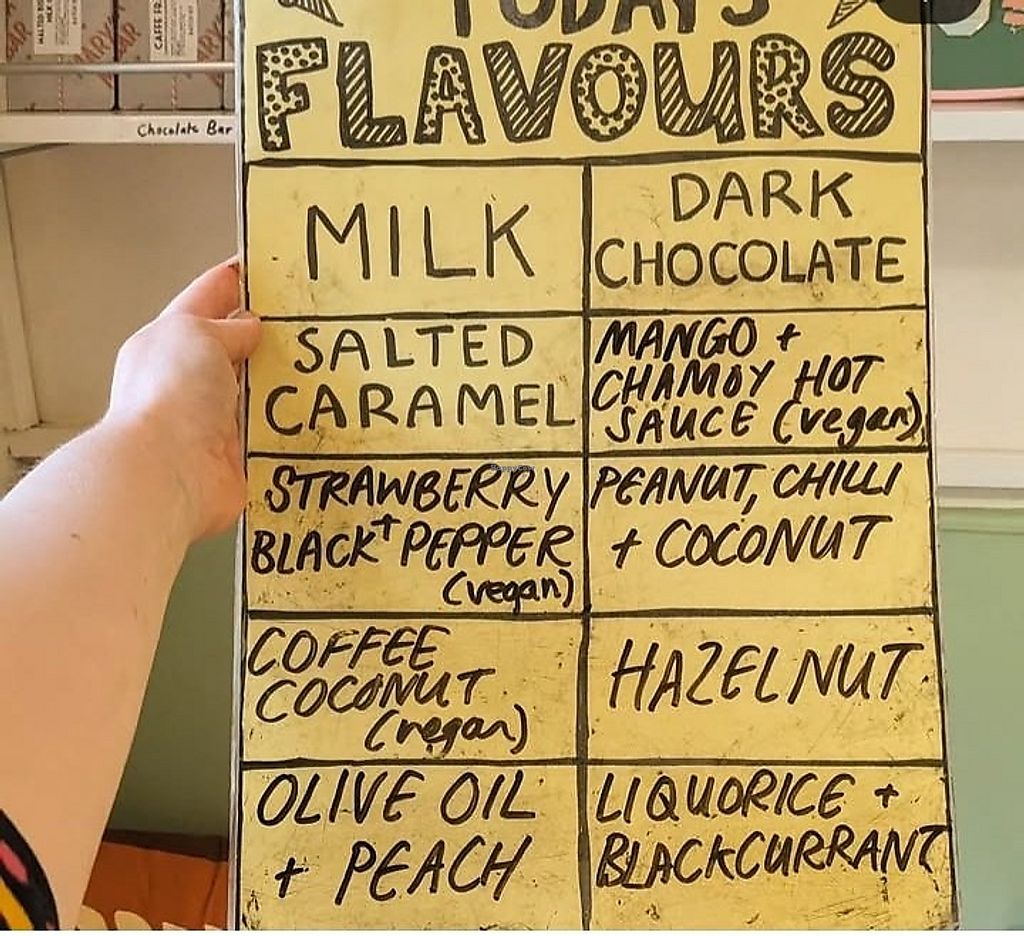 TODAY'S
FLAVOURS
MILK
DARK
CHOCOLATE
SALTED
CARAMEL
MANGO +
CHAMOY HOT
SAUCE (vegan)
STRAWBERRY
+
BLACK PEPPER
(vegan)
PEANUT, CHILLI
+ COCONUT
COFFEE
COCONUT
(vegan)
HAZELNUT
OLIVE OIL
+ PEACH
LIQUORICE +
BLACKCURRANT
Chocolate Bar